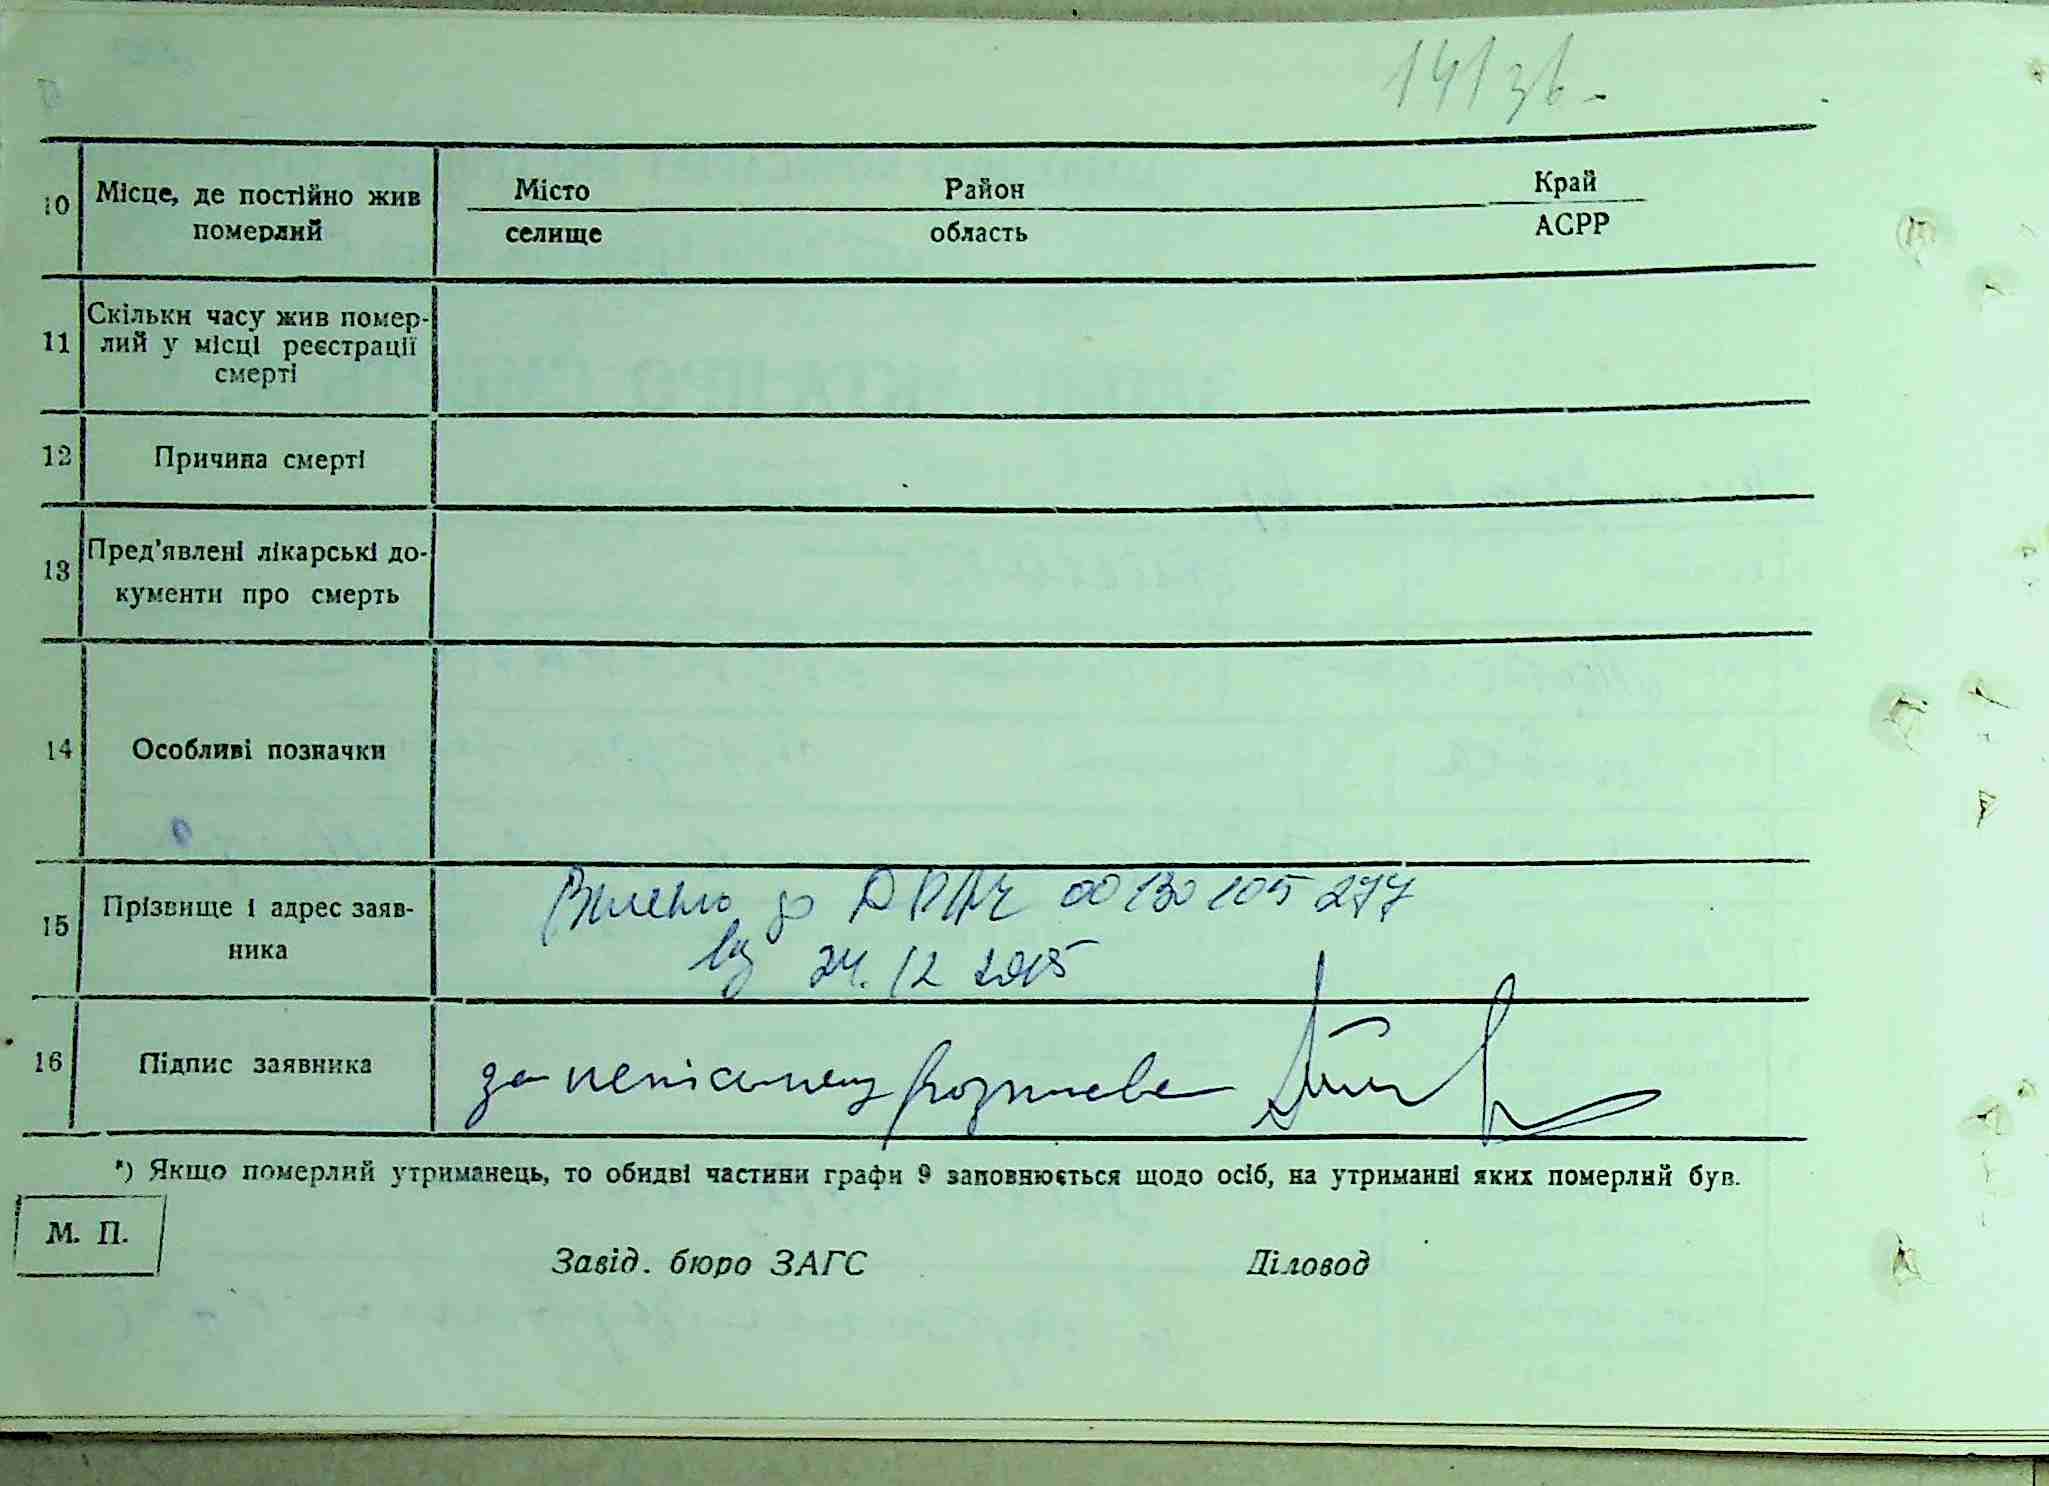 141 зв.
10 Місце, де постійно жив померлий
Місто Район Край
селище область АСРР
11 Скільки часу жив помер-
лий у місці реєстрації
смерті
12 Причина смерті
13 Пред'явлені лікарські до-
кументи про смерть
14 Особливі позначки
15 Прізвище і адрес заяв-
ника
до ДРАЦ 00130105277
від 24.12 2015
16 Підпис заявника
*) Якщо померлий утриманець, то обидві частини графи 9 заповнюється щодо осіб, на утриманні яких померлий був.
М. П.
Завід. бюро ЗАГС Діловод